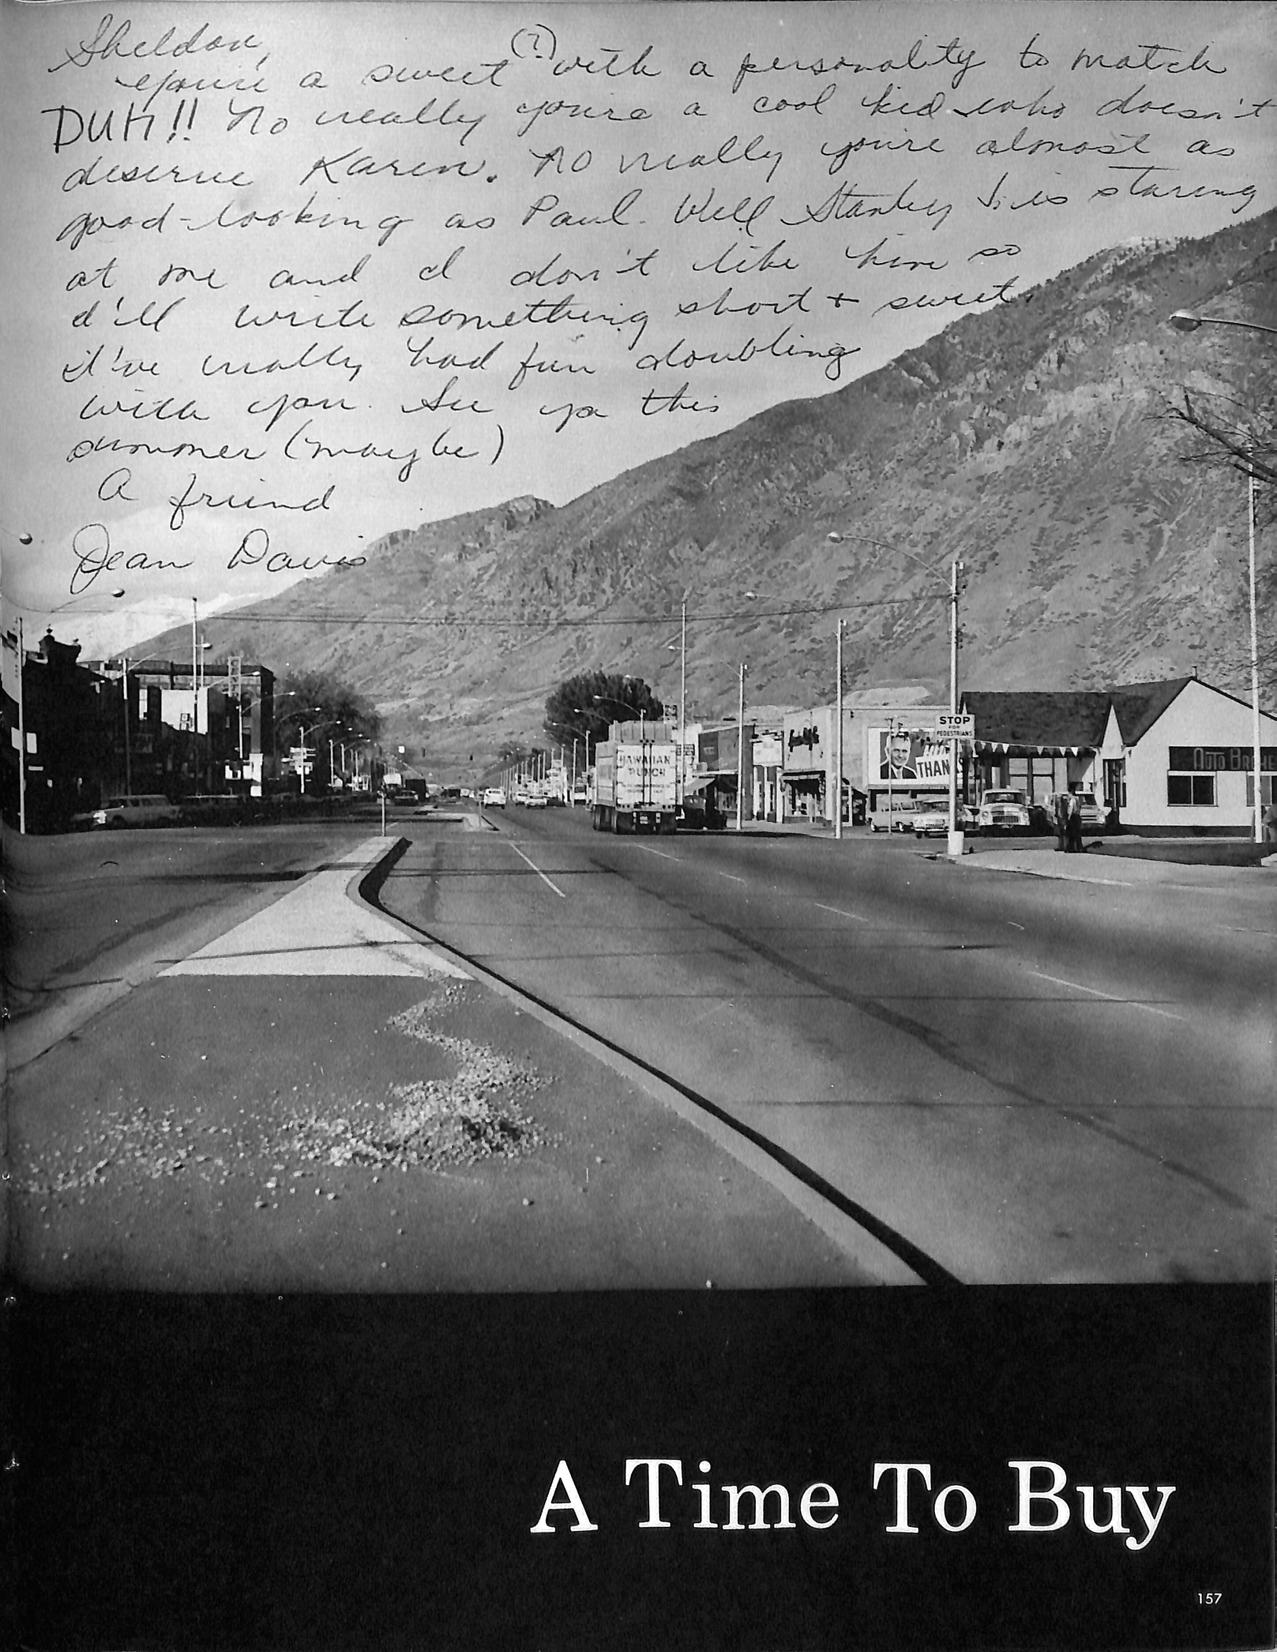 Sheldon,
you're a sweet (?) with a personality to match
DUH!! No really you're a cool kid who doesn't
deserve Karen. No really you're almost as
good-looking as Paul. Well Stanley J. is staring
at me and I don't like him so
I'll write something short + sweet.
I've really had fun doubling
with you. See ya this
summer (maybe)
A friend
Jean Davis
STOP
FOR
PEDESTRIANS
HAWAIIAN
PUNCH
THAN
AUTO
A Time To Buy
157